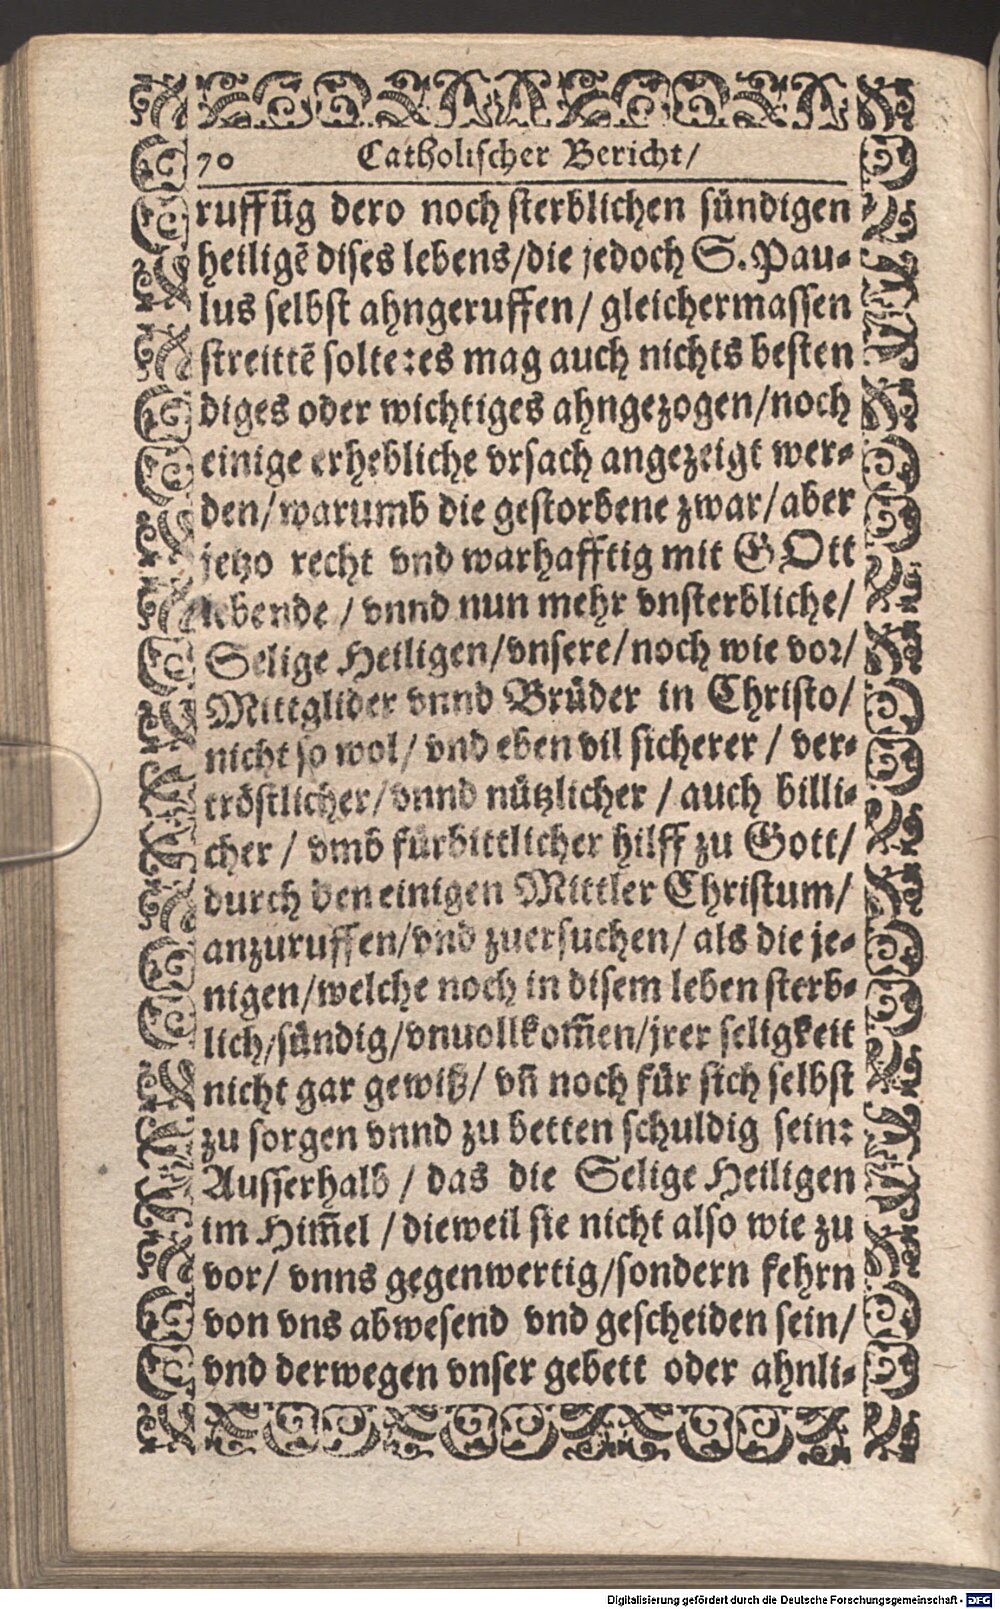 70 Catholischer Bericht/
ruffũg dero noch sterblichen sündigen
heiligẽ dises lebens/die jedoch S. Pau-
lus selbst ahngeruffen/ gleichermassen
streittẽ solte:es mag auch nichts besten
diges oder wichtiges ahngezogen/noch
einige erhebliche vrsach angezeigt wer-
den/warumb die gestorbene zwar/aber
jetzo recht vnd warhafftig mit GOtt
lebende / vnnd nun mehr vnsterbliche/
Selige Heiligen/vnsere/noch wie vor/
Mittglider vnnd Brüder in Christo/
nicht so wol/ vnd eben vil sicherer / ver-
tröstlicher/vnnd nützlicher / auch billi-
cher / vmb fürbittlicher hilff zu Gott/
durch den einigen Mittler Christum/
anzuruffen/vnd zuersuchen/ als die je-
nigen/welche noch in disem leben sterb-
lich/sündig/vnuollkom̃en/jrer seligkeit
nicht gar gewiß/ vñ noch für sich selbst
zu sorgen vnnd zu betten schuldig sein:
Ausserhalb / das die Selige Heiligen
im Him̃el / dieweil sie nicht also wie zu
vor/ vnns gegenwertig/sondern fehrn
von vns abwesend vnd gescheiden sein/
vnd derwegen vnser gebett oder ahnli-
Digitalisierung gefördert durch die Deutsche Forschungsgemeinschaft - DFG